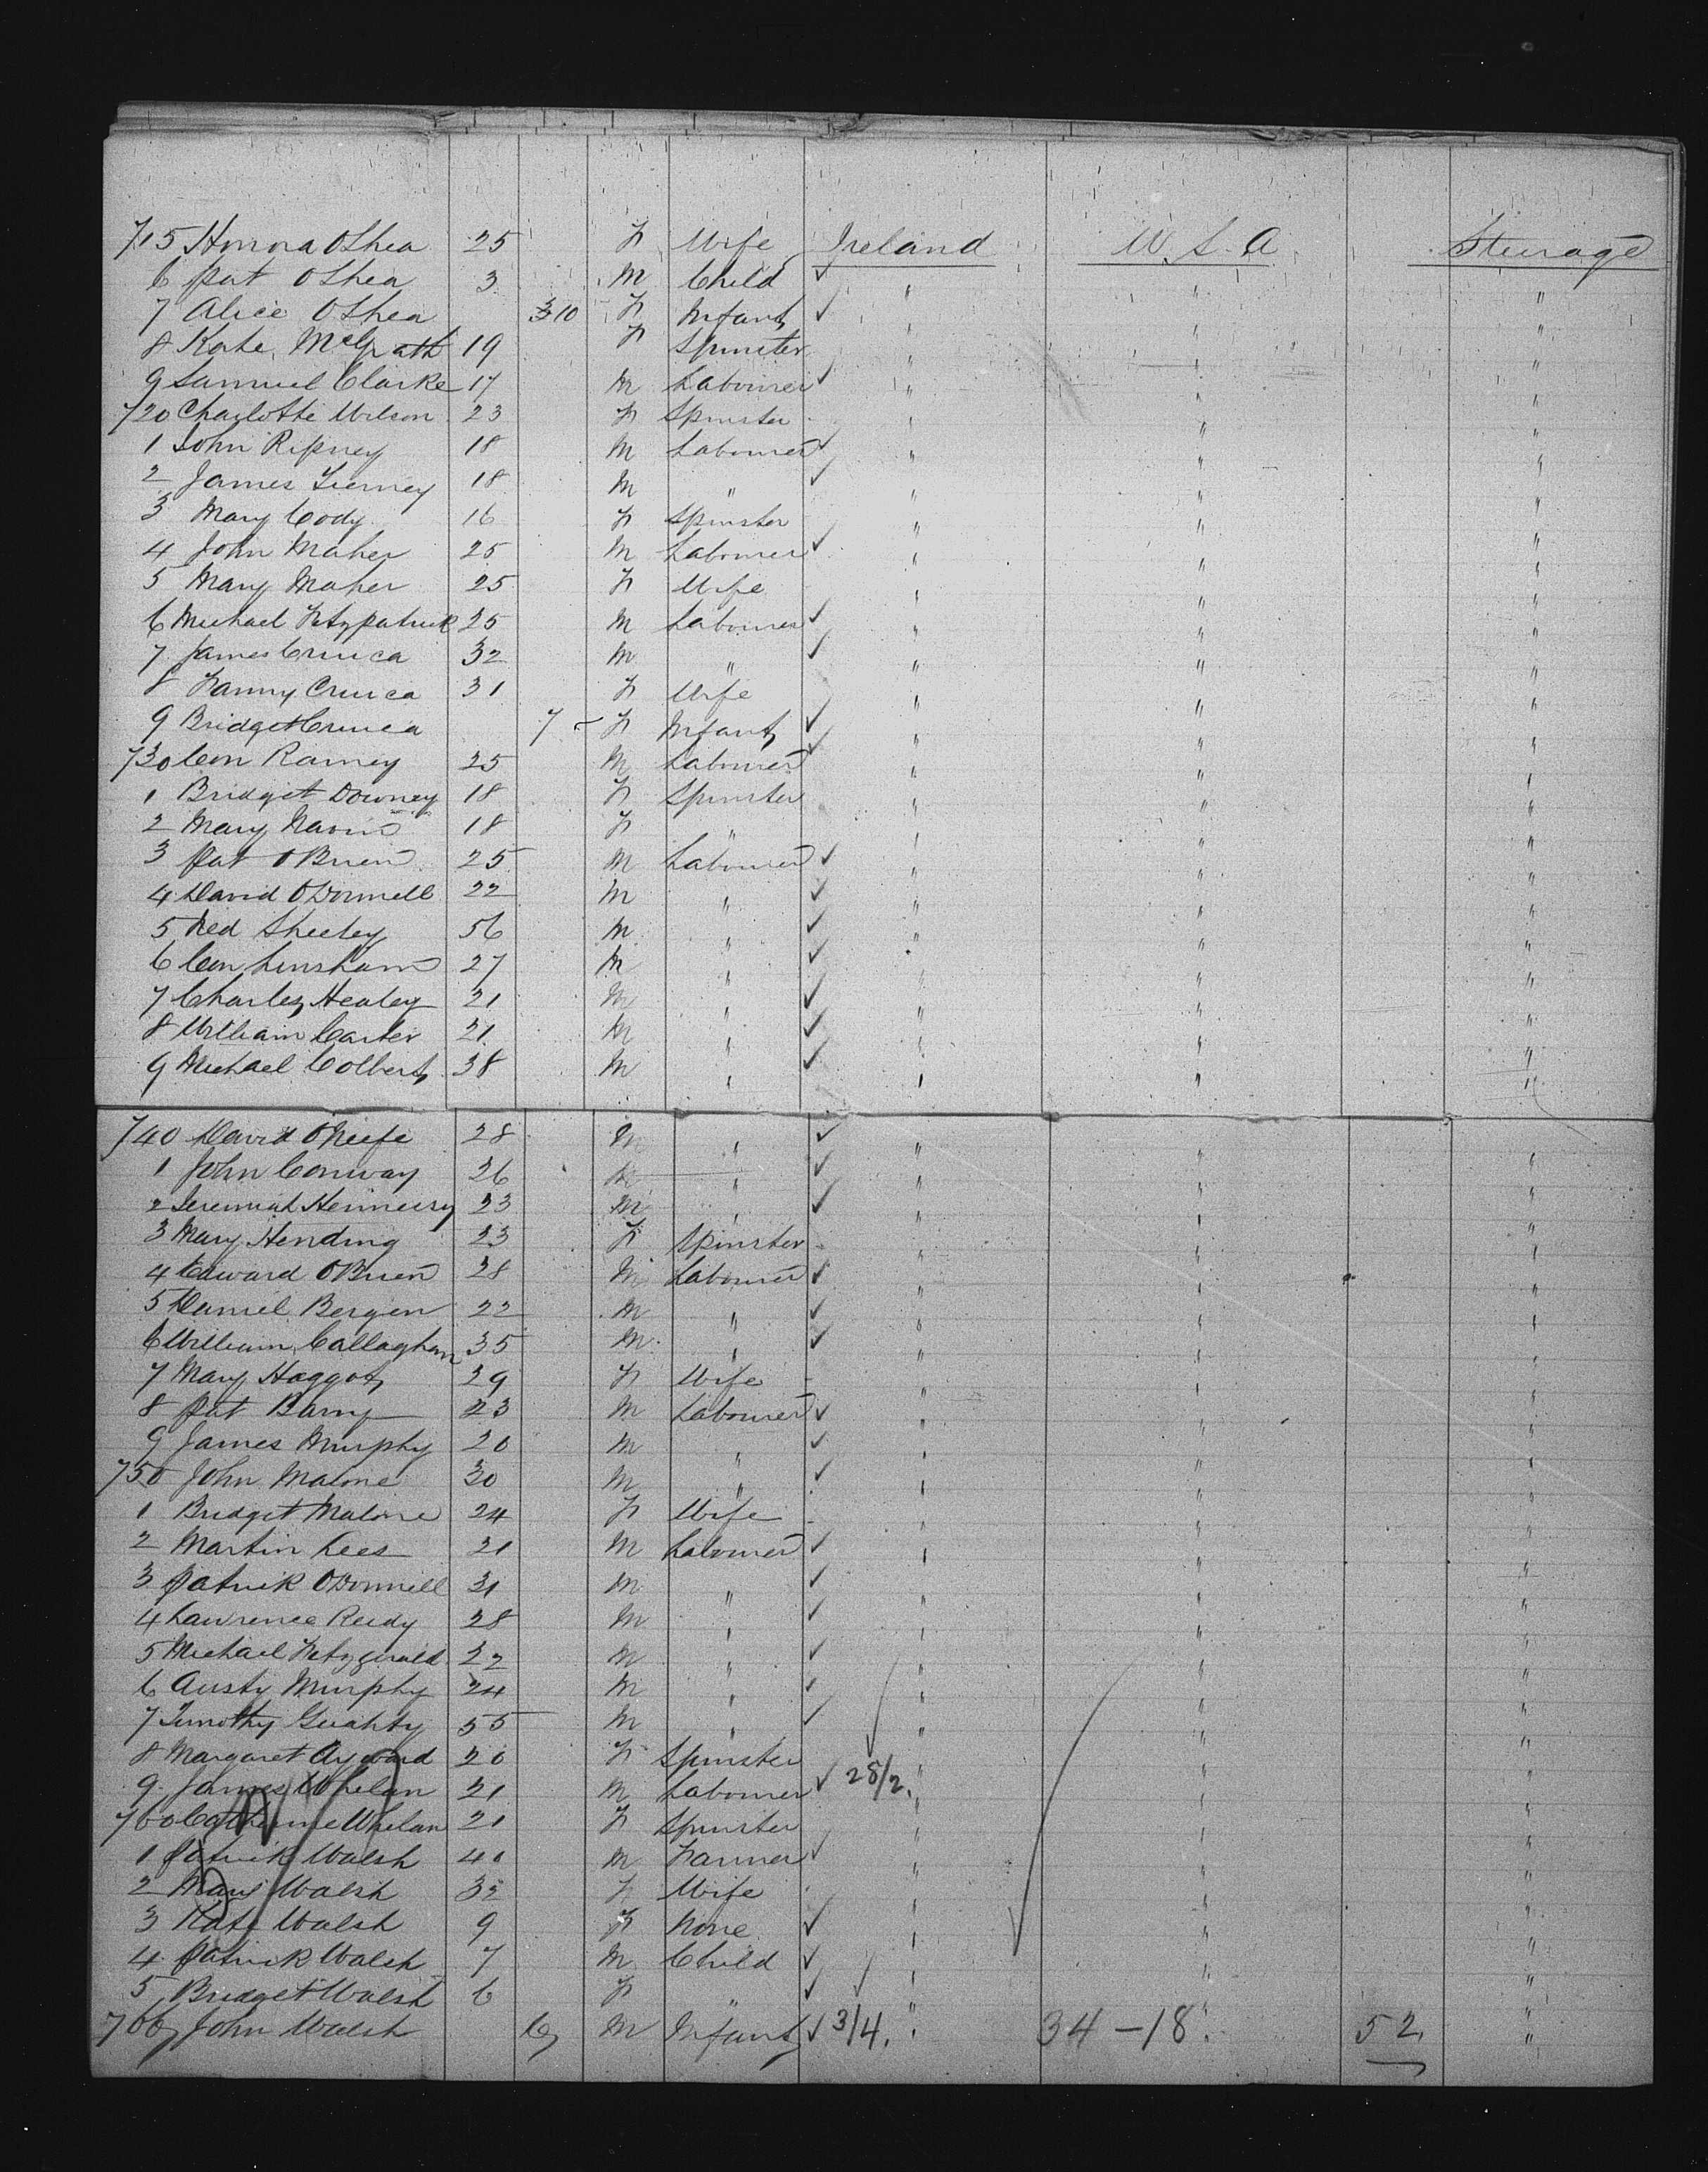 715 Honora OShea 25 F Wife Ireland U.S.A Steerage
6 Pat OShea 3 M Child ✓ " " "
7 Alice OShea 10 F Infant ✓ " " "
8 Kate McGrath 19 F Spinster " " "
9 Samuel Clarke 17 M Labourer ✓ " " "
720 Charlotte Wilson 23 F Spinster " " "
1 John Ripney 18 M Labourer ✓ " " "
2 James Tierney 18 M " ✓ " " "
3 Mary Cody 16 F Spinster " " "
4 John Maher 25 M Labourer ✓ " " "
5 Mary Maher 25 F Wife " " "
6 Michael Fitzpatrick 25 M Labourer ✓ " " "
7 James 32 M " ✓ " " "
8 Fanny 31 F Wife " " "
9 Bridget 7 F Infant ✓ " " "
730 Con Ramey 25 M Labourer ✓ " " "
1 Bridget Downey 18 F Spinster " " "
2 Mary 18 F " " " "
3 Pat OBrien 25 M Labourer ✓ " " "
4 David ODonnell 22 M " ✓ " " "
5 Ned Sheeley 56 M " ✓ " " "
6 Con 27 M " ✓ " " "
7 Charles Healey 21 M " ✓ " " "
8 William Carter 21 M " ✓ " " "
9 Michael Colbert 38 M " ✓ " " "
740 David OKeefe 28 M " ✓ " " "
1 John Conway 26 M " ✓ " " "
2 Jeremiah Hennessy 23 M " ✓ " " "
3 Mary Hending 23 F Spinster " " "
4 Edward OBrien 28 M Labourer ✓ " " "
5 Daniel Bergen 22 M " ✓ " " "
6 William Callaghan 35 M " ✓ " " "
7 Mary Haggot 29 F Wife " " "
8 Pat Barry 23 M Labourer ✓ " " "
9 James Murphy 20 M " ✓ " " "
750 John Malone 30 M " ✓ " " "
1 Bridget Malone 24 F Wife " " "
2 Martin Lees 21 M Labourer ✓ " " "
3 Patrick ODonnell 21 M " ✓ " " "
4 Lawrence Reidy 28 M " ✓ " " "
5 Michael Fitzgerald 22 M " ✓ " " "
6 Austy Murphy 24 M " ✓ " " "
7 Timothy 55 M " ✓ " " "
8 Margaret Aylward 20 F Spinster " " "
9 James Whelan 21 M Labourer ✓ 28/2. " " "
760 Catherine Whelan 21 F Spinster " " "
1 Patrick Walsh 40 M Farmer ✓ " " "
2 Mary Walsh 35 F Wife " " "
3 Kate Walsh 9 F None ✓ " " "
4 Patrick Walsh 7 M Child ✓ " " "
5 Bridget Walsh 6 F " ✓ " " "
766 John Walsh 6 M Infant ✓ 3/4. " 34 - 18. 52 "